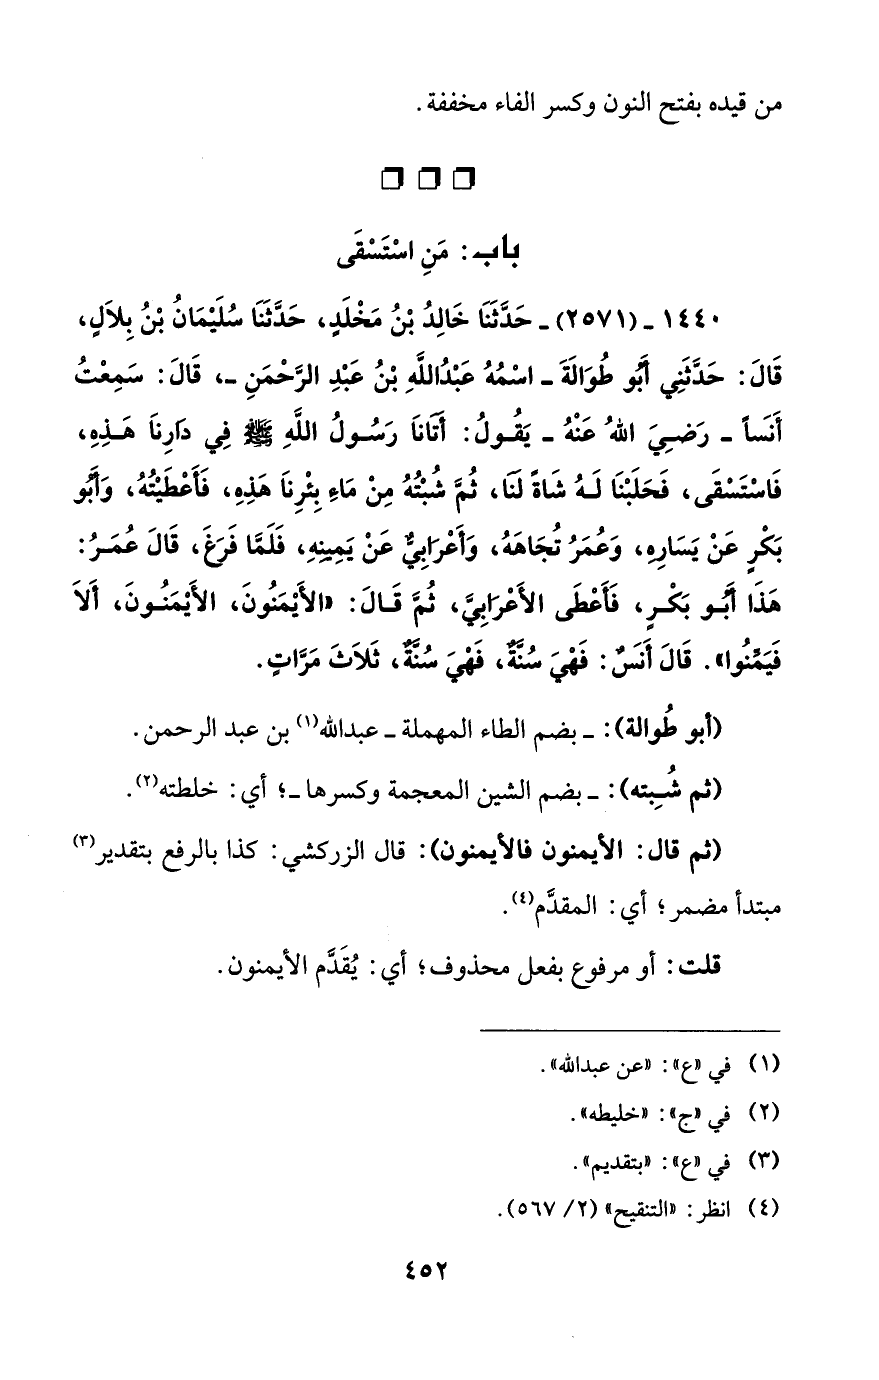 من قيده بفتح النون وكسر الفاء مخففة.
باب: مَنِ اسْتَسْقَى
١٤٤٠ ـ (٢٥٧١) ـ حَدَّثَنَا خَالِدُ بْنُ مَخْلَدٍ، حَدَّثَنَا سُلَيْمَانُ بْنُ بِلاَلٍ،
قَالَ: حَدَّثَنِي أَبُو طُوَالَةَ ـ اسْمُهُ عَبْدُاللَّهِ بْنُ عَبْدِ الرَّحْمَنِ ـ، قَالَ: سَمِعْتُ
أَنَساً ـ رَضِيَ اللهُ عَنْهُ ـ يَقُولُ: أَتَانَا رَسُولُ اللَّهِ ﷺ فِي دَارِنَا هَـذِهِ،
فَاسْتَسْقَى، فَحَلَبْنَا لَـهُ شَاةً لَنَا، ثُمَّ شُبْتُهُ مِنْ مَاءِ بِئْرِنَا هَذِهِ، فَأَعْطَيْتُهُ، وَأَبُو
بَكْرٍ عَنْ يَسَارِهِ، وَعُمَرُ تُجَاهَهُ، وَأَعْرَابِيٌّ عَنْ يَمِينِهِ، فَلَمَّا فَرَغَ، قَالَ عُمَـرُ:
هَذَا أَبُـو بَكْـرٍ، فَأَعْطَى الأَعْرَابِيَّ، ثُمَّ قَـالَ: «الأَيْمَنُونَ، الأَيْمَنُـونَ، أَلاَ
فَيَمِّنُوا». قَالَ أَنَسٌ: فَهْيَ سُنَّةٌ، فَهْيَ سُنَّةٌ، ثَلاَثَ مَرَّاتٍ.
(أبو طُوالة): ـ بضم الطاء المهملة ـ عبدالله(١) بن عبد الرحمن.
(ثم شُـِبته): ـ بضم الشين المعجمة وكسرها ـ؛ أي: خلطته(٢).
(ثم قال: الأيمنون فالأيمنون): قال الزركشي: كذا بالرفع بتقدير(٣)
مبتدأ مضمر؛ أي: المقدَّم(٤).
قلت: أو مرفوع بفعل محذوف؛ أي: يُقَدَّم الأيمنون.
(١) في «ع»: «عن عبدالله».
(٢) في «ج»: «خليطه».
(٣) في «ع»: «بتقديم».
(٤) انظر: «التنقيح» (٢/ ٥٦٧).
٤٥٢